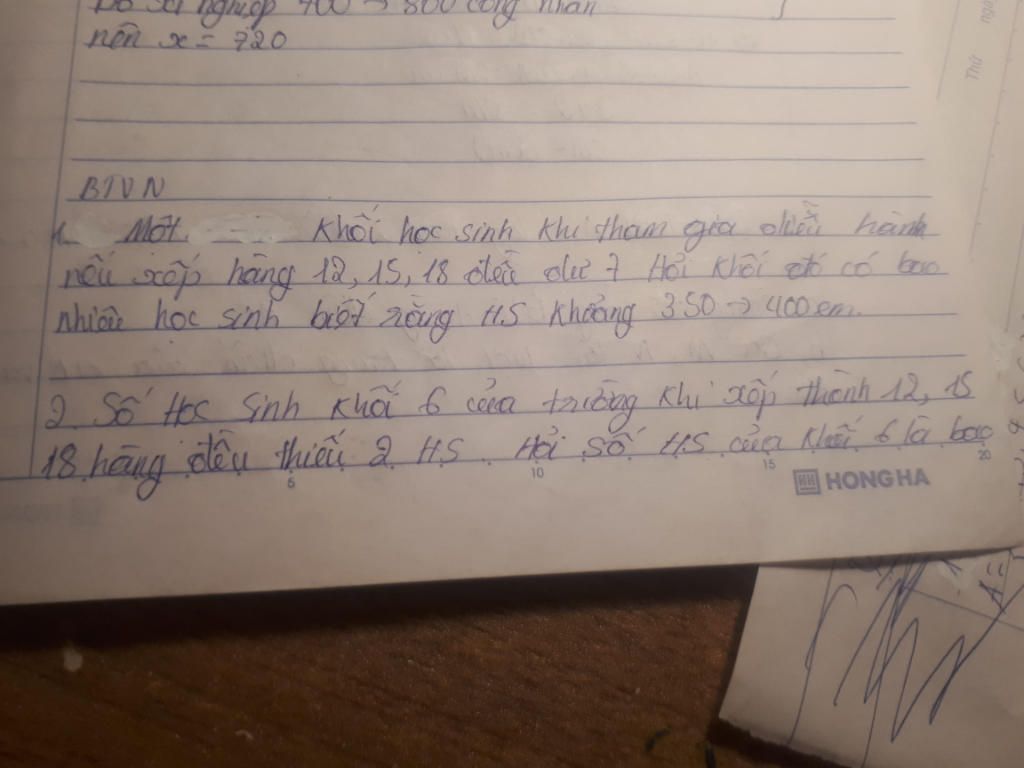 Do xí nghiệp 700 → 800 công nhân
nên x = 720
BTVN
1. Một khối học sinh khi tham gia diễu hành
nếu xếp hàng 12, 15, 18 đều dư 7 Hỏi khối đó có bao
nhiêu học sinh biết rằng HS khoảng 350 → 400 em.
2 Số Học Sinh Khối 6 của trường Khi xếp thành 12, 15
18 hàng đều thiếu 2 HS. Hỏi Số HS của Khối 6 là bao
5 10 15 20
HONG HA
Thứ